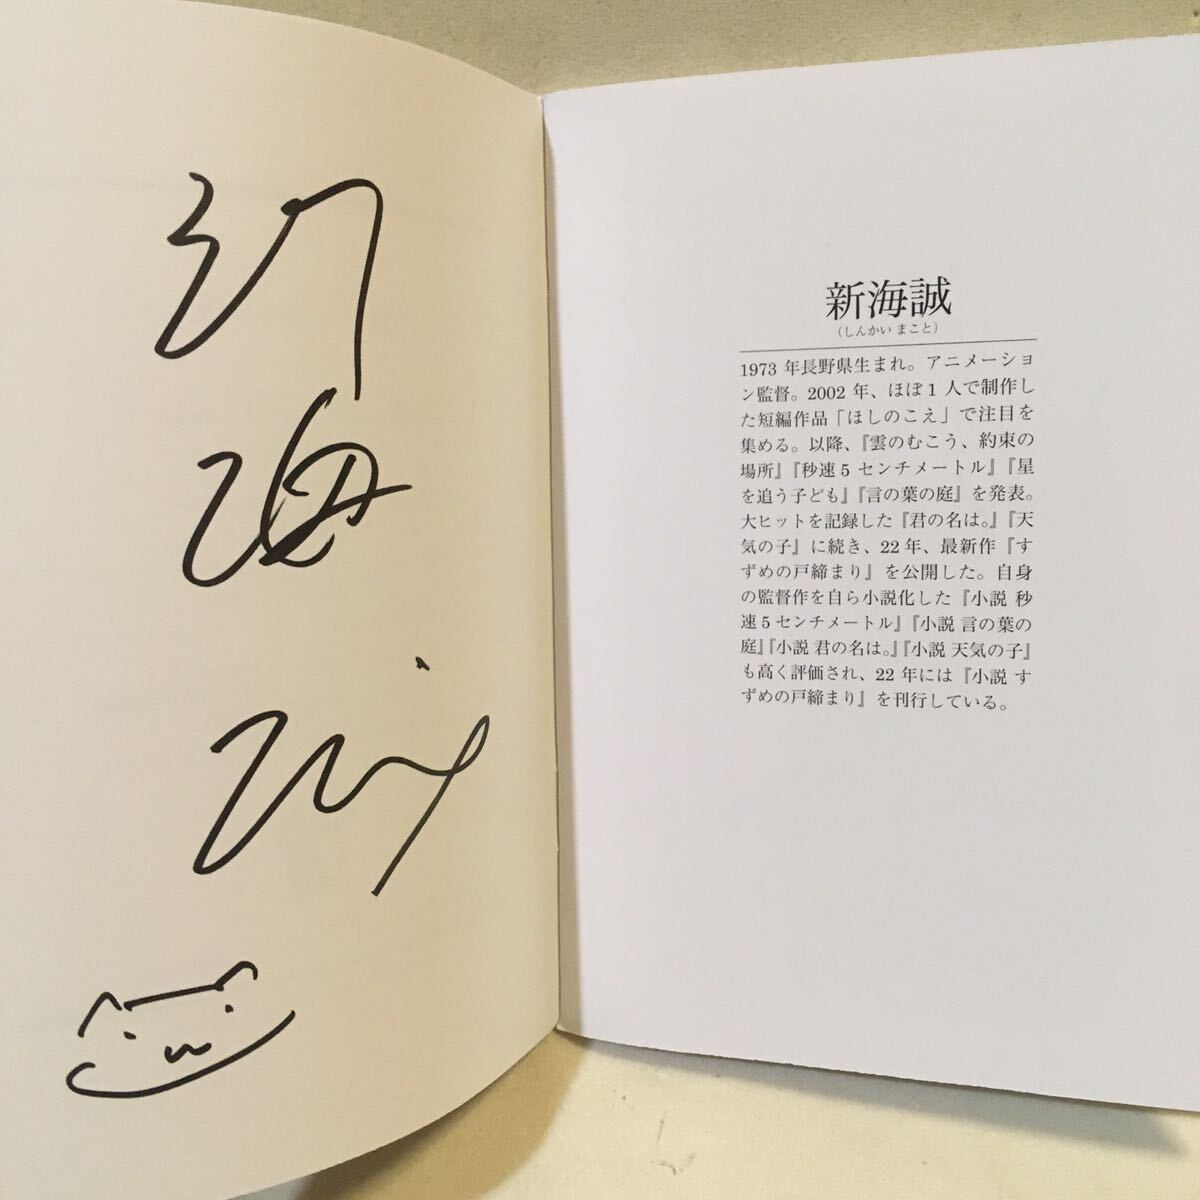 新海誠
新海誠
（しんかい まこと）
1973 年長野県生まれ。アニメーショ
ン監督。2002 年、ほぼ 1 人で制作し
た短編作品「ほしのこえ」で注目を
集める。以降、『雲のむこう、約束の
場所』『秒速 5 センチメートル』『星
を追う子ども』『言の葉の庭』を発表。
大ヒットを記録した『君の名は。』『天
気の子』に続き、22 年、最新作『す
ずめの戸締まり』を公開した。自身
の監督作を自ら小説化した『小説 秒
速 5 センチメートル』『小説 言の葉の
庭』『小説 君の名は。』『小説 天気の子』
も高く評価され、22 年には『小説 す
ずめの戸締まり』を刊行している。